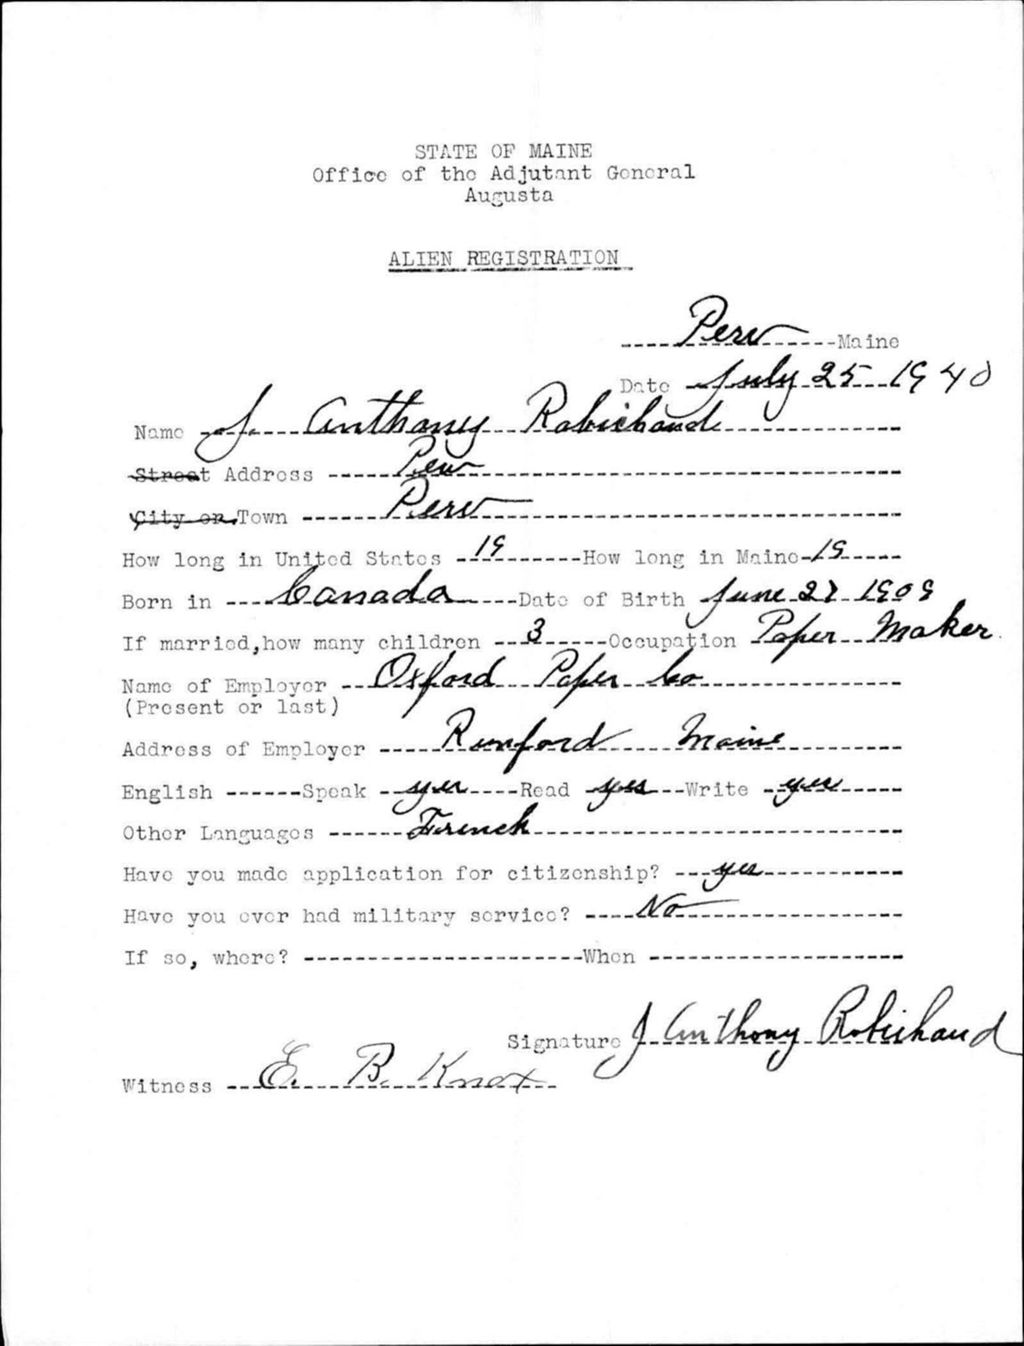 STATE OF MAINE
Office of the Adjutant General
Augusta
ALIEN REGISTRATION
Peru Maine
Date July 25 1940
Name J. Anthony Robichaud
Street Address Peru
City or Town Peru
How long in United States 19 How long in Maine 19
Born in Canada Date of Birth June 27 1909
If married, how many children 3 Occupation Paper Maker
Name of Employer Oxford Paper Co
(Present or last)
Address of Employer Rumford Maine
English Speak yes Read yes Write yes
Other Languages French
Have you made application for citizenship? yes
Have you ever had military service? No
If so, where? When
Signature J Anthony Robichaud
Witness E. B. Knox